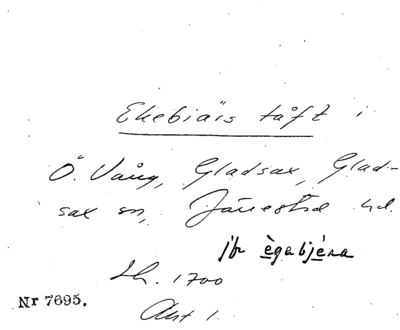 Ekebiärs tåft i
Ö. Vång, Gladsax, Glad-
sax sn, Järrestad hd.
jfr ègabjéra
Lh. 1700
Akt 1.
Nr 7695.